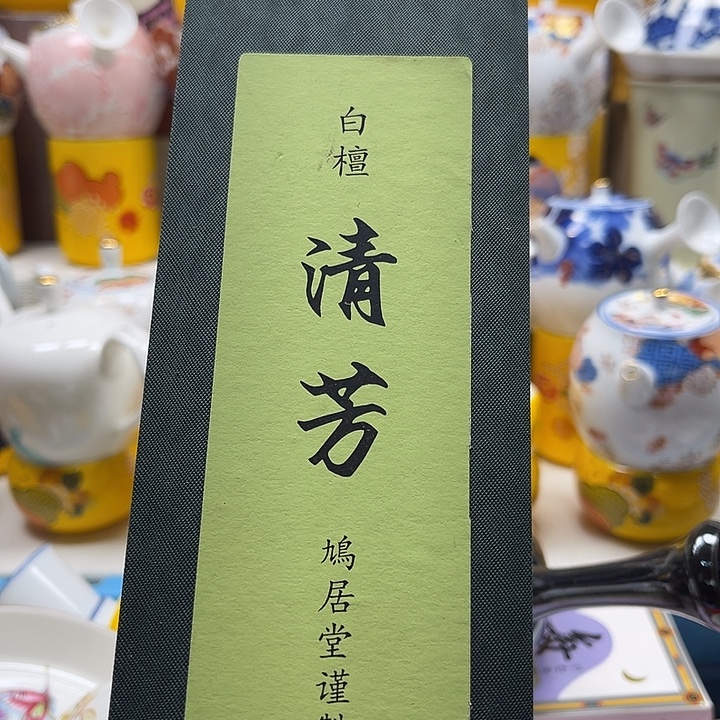 白檀
清芳
鳩居堂謹製